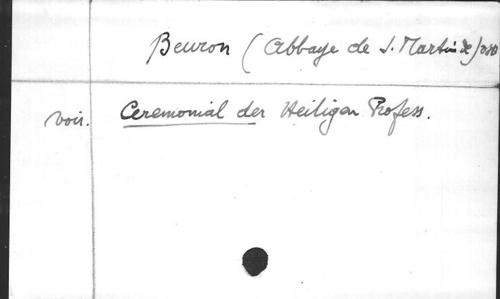 Beuron (Abbaye de S. Martin de)
voir. Ceremonial der Heiligen Profess.